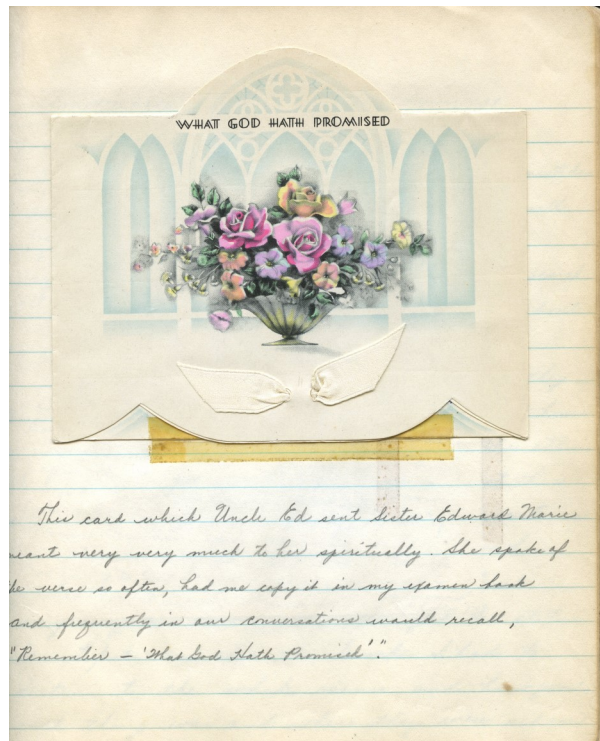 WHAT GOD HATH PROMISED
This card which Uncle Ed sent Sister Edward Marie
meant very very much to her spiritually. She spoke of
the verse so often, had me copy it in my examen book
and frequently in our conversations would recall,
"Remember – 'What God Hath Promised'."